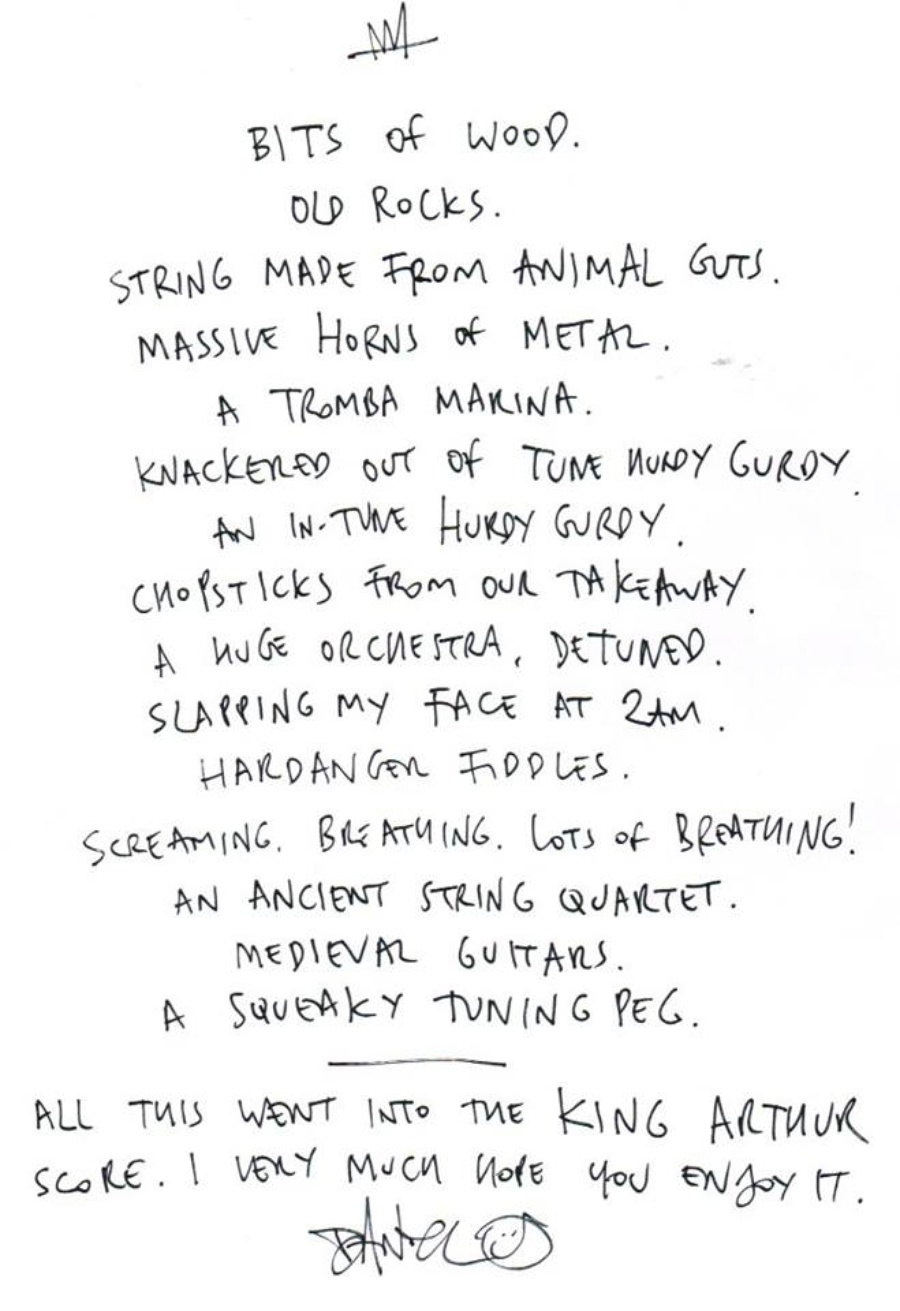 BITS of WOOD.
OLD ROCKS.
STRING MADE FROM ANIMAL GUTS.
MASSIVE HORNS of METAL.
A TROMBA MARINA.
KNACKERED OUT OF TUNE HURDY GURDY.
AN IN-TUNE HURDY GURDY.
CHOPSTICKS FROM OUR TAKEAWAY.
A HUGE ORCHESTRA, DETUNED.
SLAPPING MY FACE AT 2AM.
HARDANGER FIDDLES.
SCREAMING. BREATHING. LOTS of BREATHING!
AN ANCIENT STRING QUARTET.
MEDIEVAL GUITARS.
A SQUEAKY TUNING PEG.
ALL THIS WENT INTO THE KING ARTHUR
SCORE. I VERY MUCH HOPE YOU ENJOY IT.
DANIEL